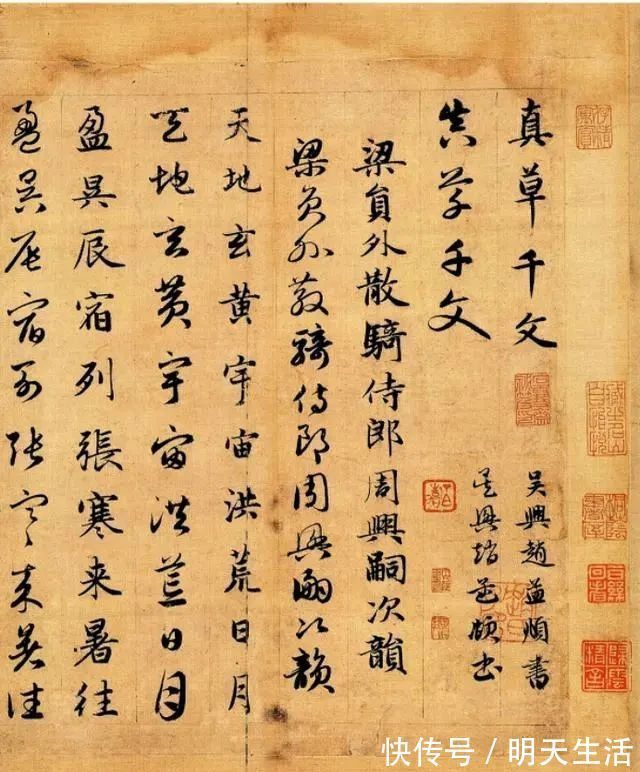 真草千文
吴興趙孟頫書
真草千文
吴興趙孟頫書
梁員外散騎侍郎周興嗣次韻
梁員外散騎侍郎周興嗣次韻
天地玄黄宇宙洪荒日月
天地玄黄宇宙洪荒日月
盈昃辰宿列張寒来暑往
盈昃辰宿列張寒来暑往
快传号 / 明天生活